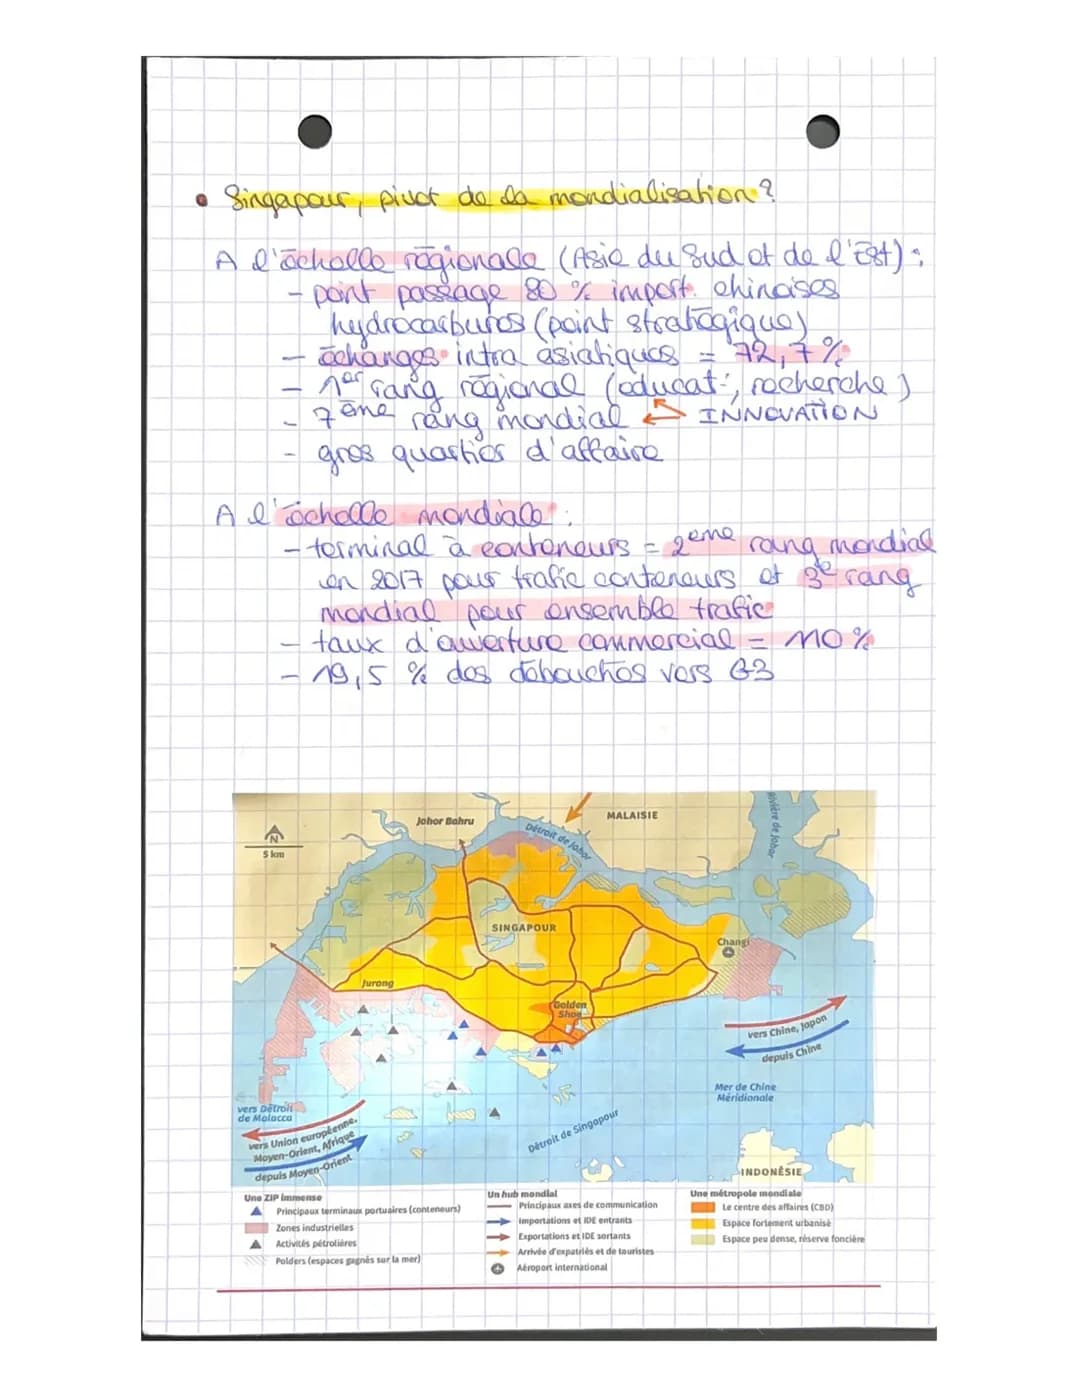 Singapour, pivot de la mondialisation ?
A l'échelle régionale (Asie du Sud et de l'Est) :
- point passage 80 % import. chinoises
hydrocarbures (point stratégique)
- échanges intra asiatiques = 72,7 %
- 1er rang régional (educat°, recherche)
- 7ème rang mondial INNOVATION
- gros quartier d'affaire
A l'échelle mondiale :
- terminal à conteneurs = 2ème rang mondial
en 2017 pour trafic conteneurs et 3e rang
mondial pour ensemble trafic
- taux d'ouverture commercial = 110 %
- 19,5 % des débouchés vers G3
N
5 km
Johor Bahru
Détroit de Johor
MALAISIE
Rivière de Johor
SINGAPOUR
Changi
Jurong
Golden
Shoe
vers Chine, Japon
depuis Chine
Mer de Chine
Méridionale
vers Détroit
de Malacca
vers Union européenne,
Moyen-Orient, Afrique
depuis Moyen-Orient
Détroit de Singapour
INDONÉSIE
Une ZIP immense
Principaux terminaux portuaires (conteneurs)
Zones industrielles
Activités pétrolières
Polders (espaces gagnés sur la mer)
Un hub mondial
Principaux axes de communication
Importations et IDE entrants
Exportations et IDE sortants
Arrivée d'expatriés et de touristes
Aéroport international
Une métropole mondiale
Le centre des affaires (CBD)
Espace fortement urbanisé
Espace peu dense, réserve foncière